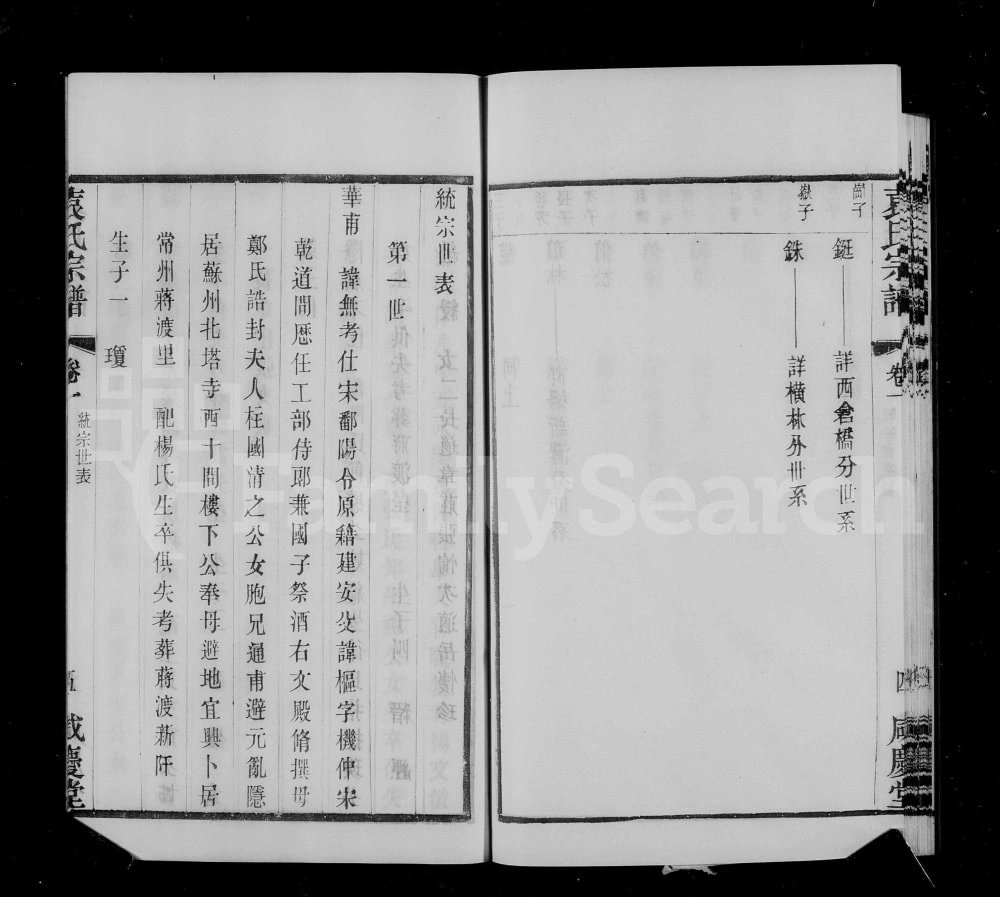 袁氏宗譜
卷一
四
咸慶堂
崮子
鋌
詳西倉橋分世系
嶽子
銖
詳橫林分世系
統宗世表
第一世
華甫 諱無考仕宋鄱陽令原籍建安父諱樞字機仲宋
乾道間歷任工部侍郎兼國子祭酒右文殿脩撰母
鄭氏誥封夫人柱國清之公女胞兄通甫避元亂隱
居蘇州北塔寺西十間樓下公奉母避地宜興卜居
常州蔣渡里 配楊氏生卒俱失考葬蔣渡新阡
生子一 瓊
袁氏宗譜
卷一
統宗世表
五
咸慶堂
FamilySearch